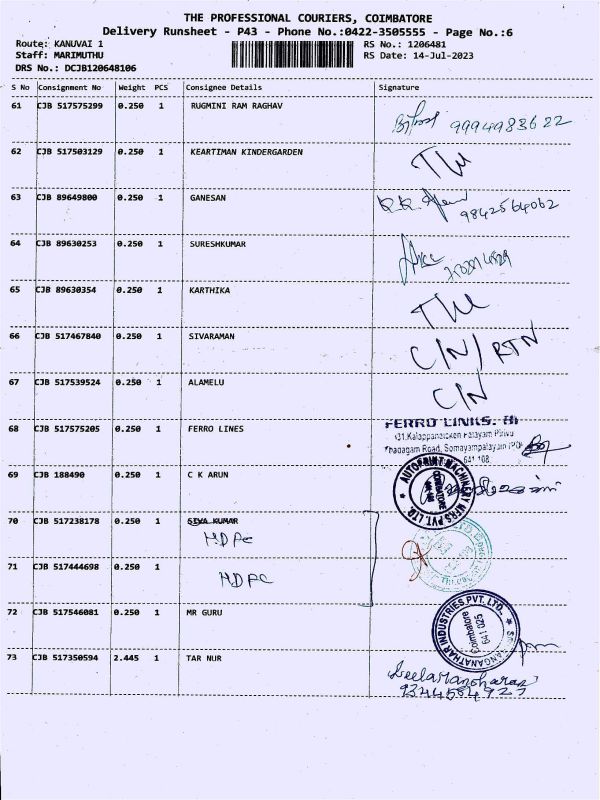 THE PROFESSIONAL COURIERS, COIMBATORE
Delivery Runsheet - P43 - Phone No.:0422-3505555 - Page No.:6
Route: KANUVAI 1 RS No.: 1206481
Staff: MARIMUTHU RS Date: 14-Jul-2023
DRS No.: DCJB120648106
S No Consignment No Weight PCS Consignee Details Signature
61 CJB 517575299 0.250 1 RUGMINI RAM RAGHAV 9994983622
62 CJB 517503129 0.250 1 KEARTIMAN KINDERGARDEN
63 CJB 89649800 0.250 1 GANESAN 9842564062
64 CJB 89630253 0.250 1 SURESHKUMAR
65 CJB 89630354 0.250 1 KARTHIKA
66 CJB 517467840 0.250 1 SIVARAMAN C/N/ RTN
67 CJB 517539524 0.250 1 ALAMELU C/N
68 CJB 517575205 0.250 1 FERRO LINES FERRO LINKS
Thadagam Road, Somayampalayam (PO)
641 108
69 CJB 188490 0.250 1 C K ARUN AUTOPRINT MACHINERY MFRS PVT. LTD. COIMBATORE
70 CJB 517238178 0.250 1 SIVA KUMAR
HDFC
71 CJB 517444698 0.250 1 HDFC
72 CJB 517546081 0.250 1 MR GURU SRI RANGANATHAR INDUSTRIES PVT. LTD., Coimbatore 641 025
73 CJB 517350594 2.445 1 TAR NUR LeelaManoharan
9344554927